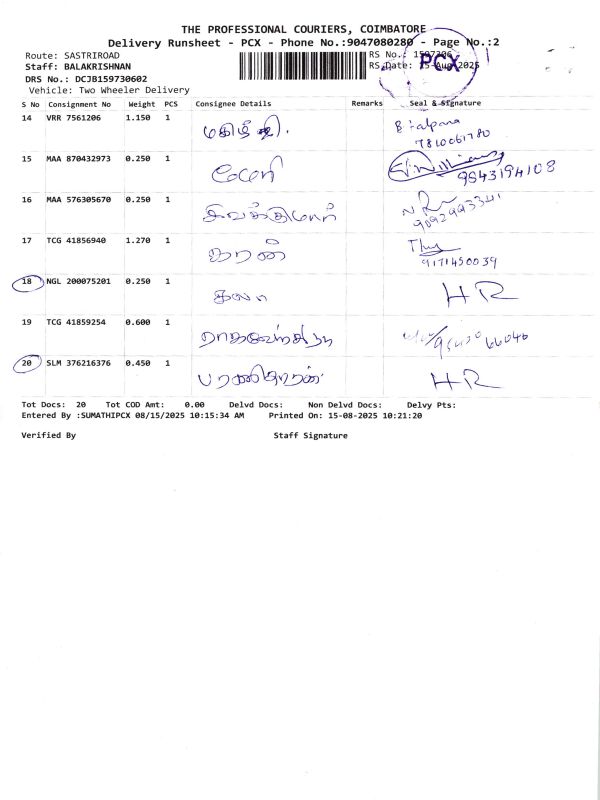 THE PROFESSIONAL COURIERS, COIMBATORE
Delivery Runsheet - PCX - Phone No.:9047080280 - Page No.:2
Route: SASTRIROAD RS No.:
Staff: BALAKRISHNAN RS Date: 15-Aug-2025
PCX
DRS No.: DCJB159730602
Vehicle: Two Wheeler Delivery
S No Consignment No Weight PCS Consignee Details Remarks Seal & Signature
14 VRR 7561206 1.150 1
7810061780
15 MAA 870432973 0.250 1 மேரி
9843194108
16 MAA 576305670 0.250 1 சிவக்குமார்
9092993341
17 TCG 41856940 1.270 1 சரண்
9171450039
18 NGL 200075201 0.250 1 கலா HR
19 TCG 41859254 0.600 1
20 SLM 376216376 0.450 1 பரணிதரன் HR
Tot Docs: 20 Tot COD Amt: 0.00 Delvd Docs: Non Delvd Docs: Delvy Pts:
Entered By :SUMATHIPCX 08/15/2025 10:15:34 AM Printed On: 15-08-2025 10:21:20
Verified By Staff Signature